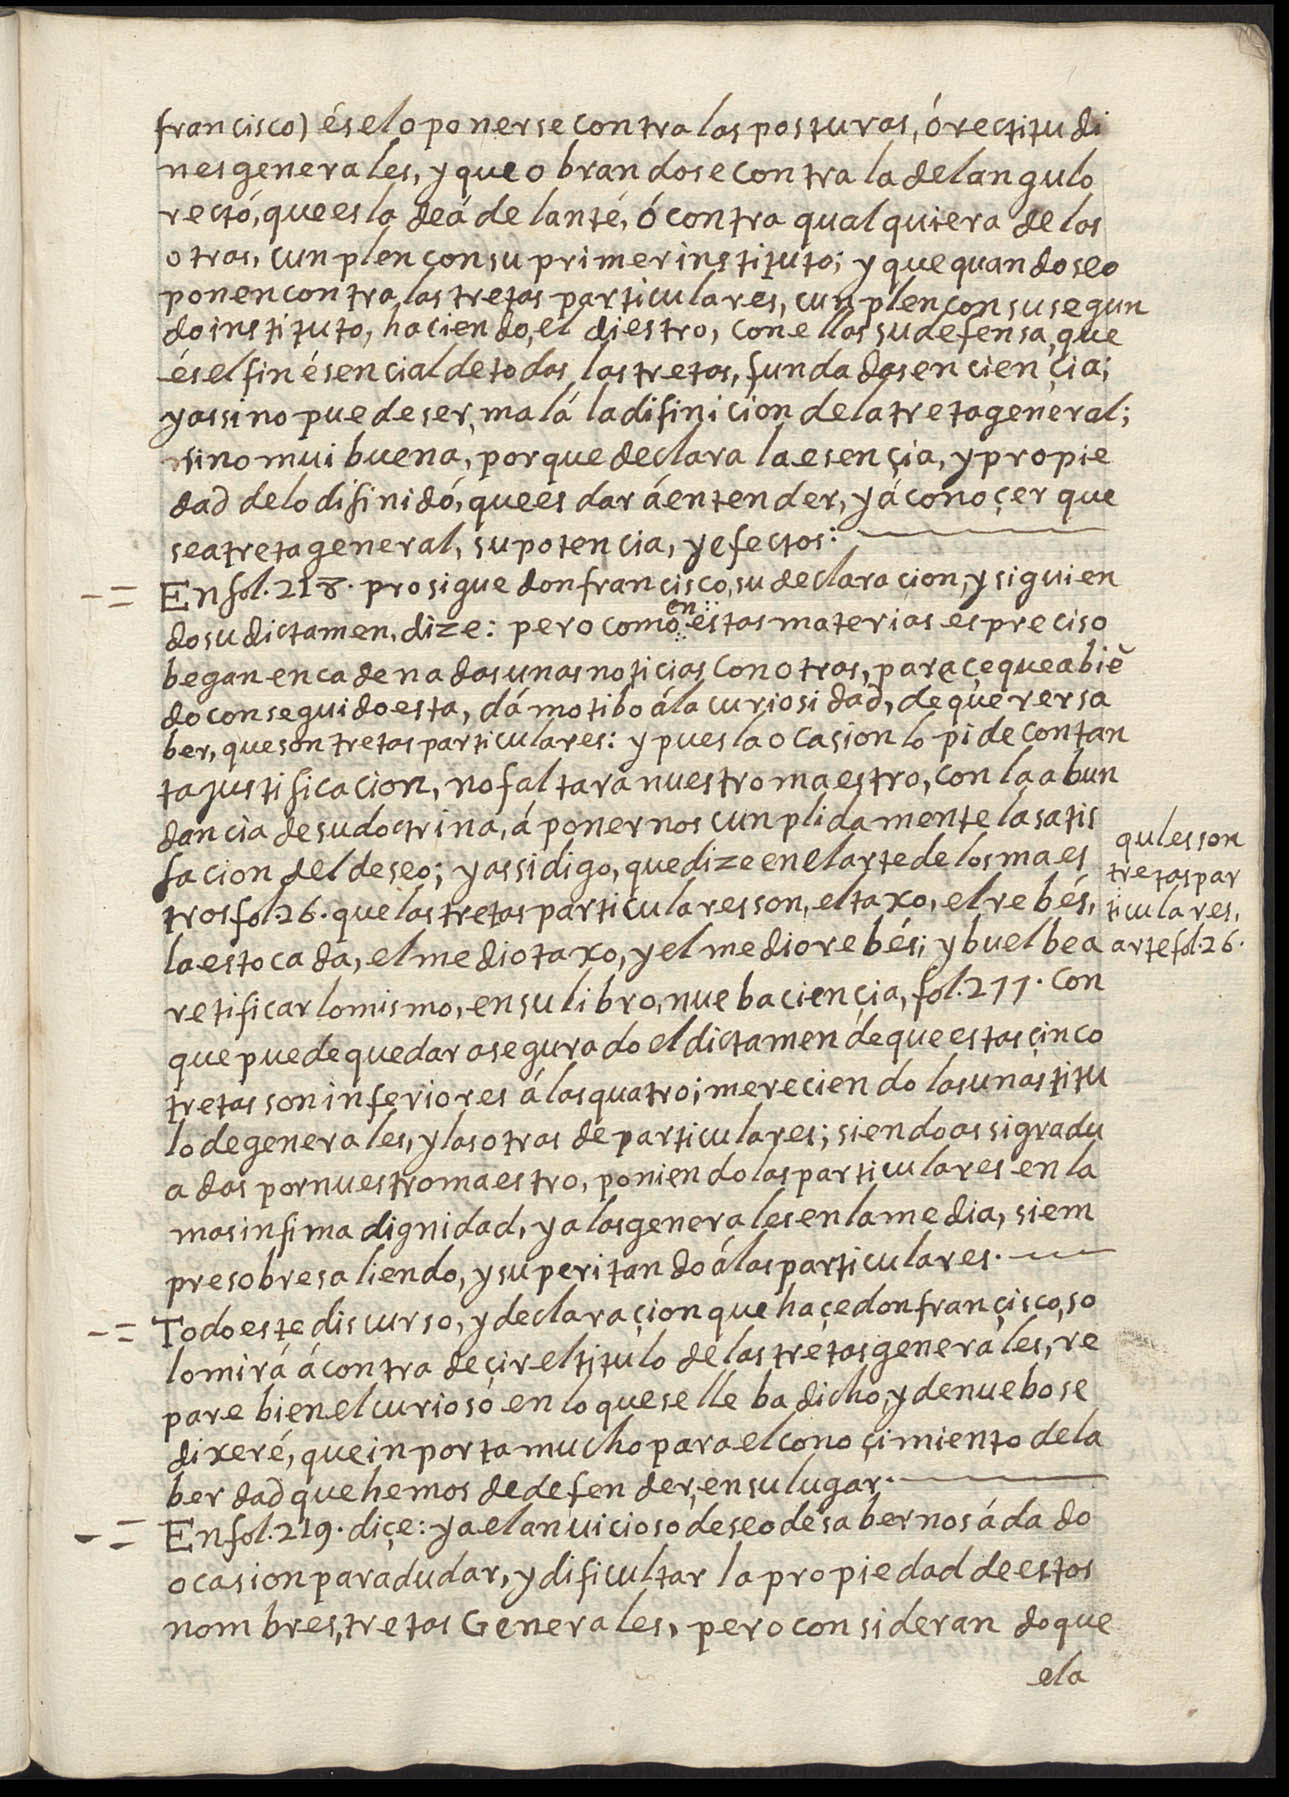 francisco) és el oponerse contra las posturas, ó rectitudi
nes generales, y que obrandose contra la del angulo
rectó, que es la deá delanté, ó contra qualquiera de las
otras, cunplen con su primer instituto; y que quando se o
ponen contra las tretas particulares, cunplen con su segun
do instituto, haciendo, el diestro, con ellas su defensa, que
és el fin ésencial de todas las tretas, fundadas en ciençia;
y assi no puede ser, malá la difinicion de la treta general;
sino mui buena, porque declara la esençia, y propie
dad de lo difinidó, que es dar á entender, y á conoçer que
sea treta general, su potencia, y efectos:
= En fol. 218. prosigue don francisco, su declaracion, y siguien
do su dictamen, dize: pero como en estas materias es preciso
began encadenadas unas noticias con otras, paraçe que abiẽ
do conseguido esta, dá motibo á la curiosidad, de querer sa
ber, que son tretas particulares: y pues la ocasion lo pide con tan
ta justificacion, no faltara nuestro maestro, con la abun
dancia de su doctrina, á ponernos cunplidamente la satis
facion del deseo; y assi digo, que dize en el arte de los maes
tros fol. 26. que las tretas particulares son, el taxo, el rebés,
la estocada, el medio taxo, y el medio rebés; y buelbe a
retificar lo mismo, en su libro, nueba ciençia, fol. 211. con
que puede quedar asegurado el dictamen de que estas çinco
tretas son inferiores á las quatro; mereciendo las unas titu
lo de generales, y las otras de particulares; siendo assi gradu
adas por nuestro maestro, poniendo las particulares en la
mas infima dignidad, y a las generales en la media, siem
pre sobresaliendo, y superitando á las particulares.
= Todo este discurso, y declaraçion que haçe don françisco, so
lo mirá á contradeçir el titulo de las tretas generales, re
pare bien el curiosó en lo que se lle ba dicho, y de nuebo se
dixeré, que inporta mucho para el conoçimiento de la
berdad que hemos de defender, en su lugar.
= En fol. 219. diçe: ya el anuicioso deseo de saber nos á dado
ocasion para dudar, y dificultar la propiedad de estos
nombres, tretas Generales, pero considerando que
ela
qules son
tretas par
ticulares,
arte fol. 26.